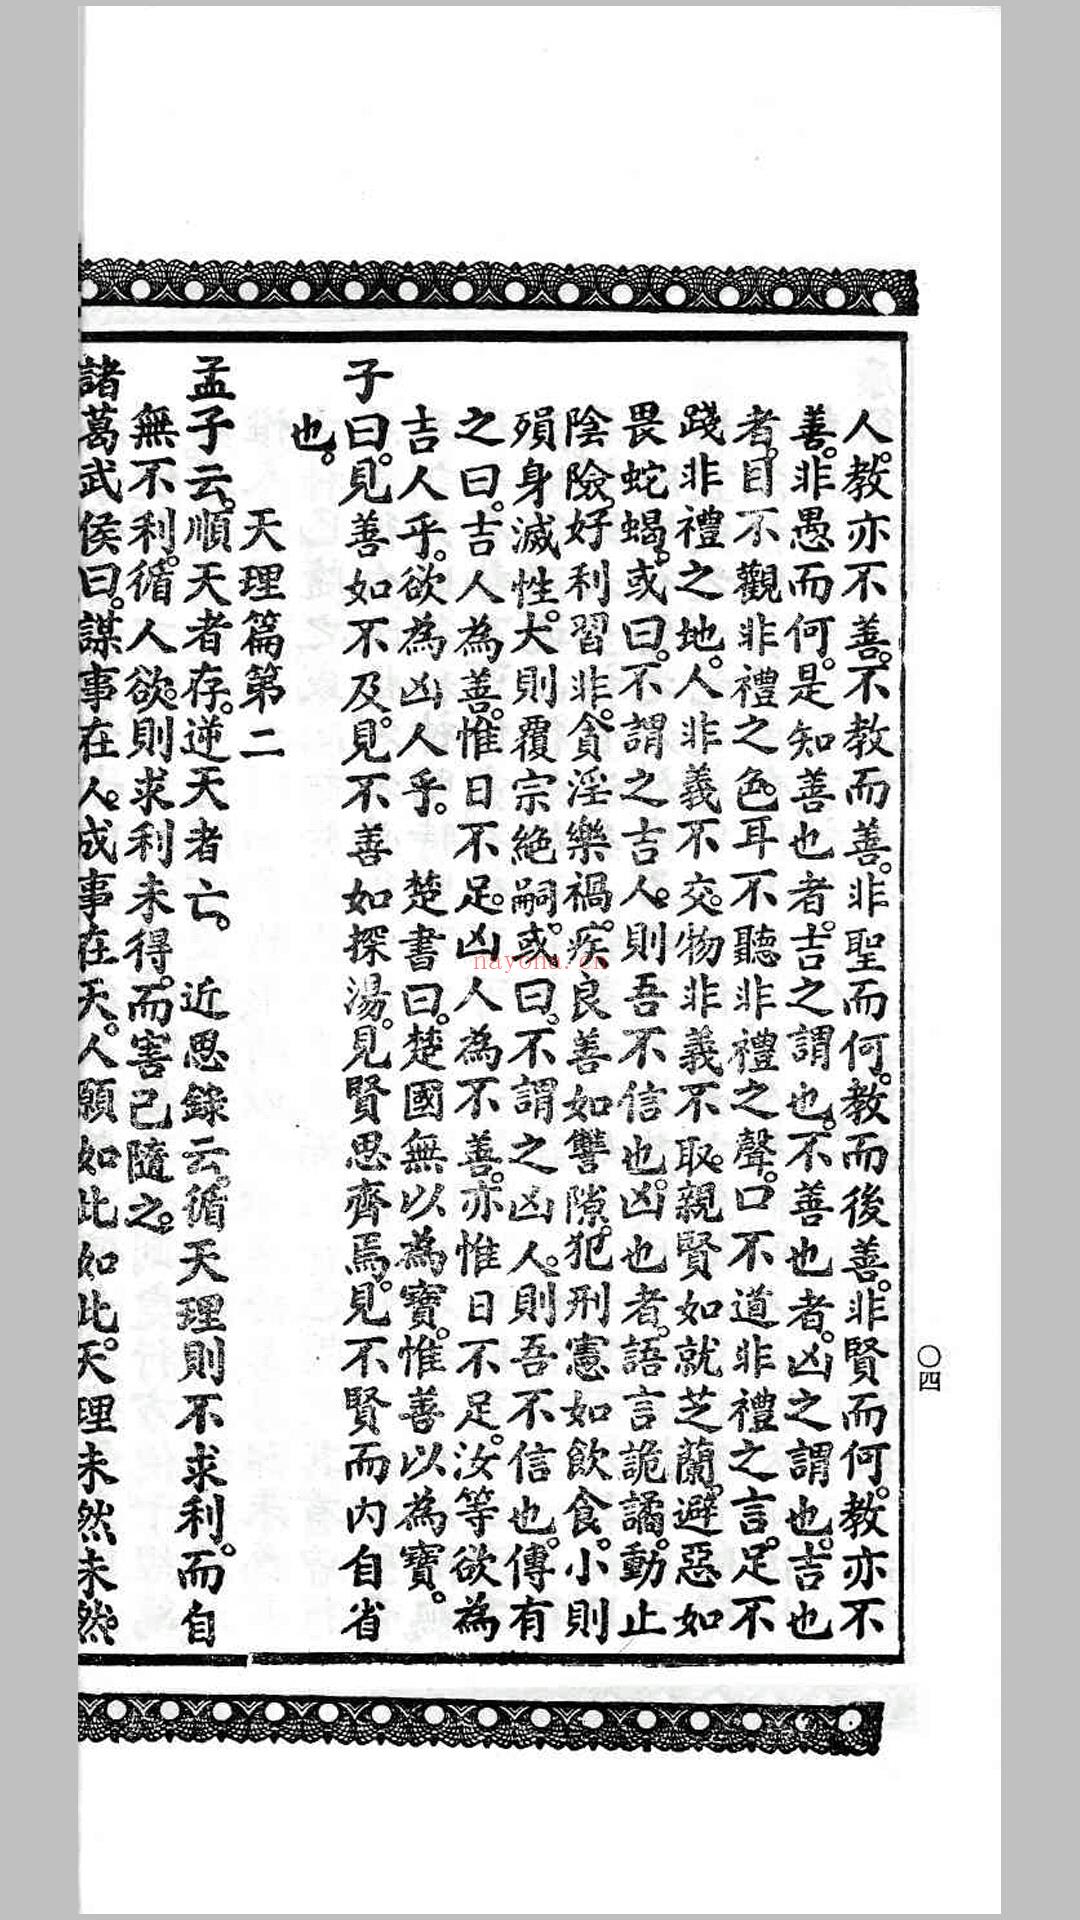 人。教亦不善。不教而善。非聖而何。教而後善。非賢而何。教亦不
善。非愚而何。是知善也者。吉之謂也。不善也者。凶之謂也。吉也
者。目不觀非禮之色。耳不聽非禮之聲。口不道非禮之言。足不
踐非禮之地。人非義不交。物非義不取。親賢如就芝蘭。避惡如
畏蛇蝎。或曰。不謂之吉人。則吾不信也。凶也者。語言詭譎。動止
陰險。好利習非。貪淫樂禍。疾良善如讐隙。犯刑憲如飲食。小則
殞身滅性。大則覆宗絶嗣。或曰。不謂之凶人。則吾不信也。傳有
之曰。吉人為善。惟日不足。凶人為不善。亦惟日不足。汝等欲為
吉人乎。欲為凶人乎。 楚書曰。楚國無以為寶。惟善以為寶。
子曰。見善如不及。見不善如探湯。見賢思齊焉。見不賢而內自省
也。
天理篇第二
孟子云。順天者存。逆天者亡。 近思錄云。循天理則不求利。而自
無不利。循人欲。則求利未得。而害己隨之。
諸葛武侯曰。謀事在人。成事在天。人願如此如此。天理未然未然
〇四
nayona.cn